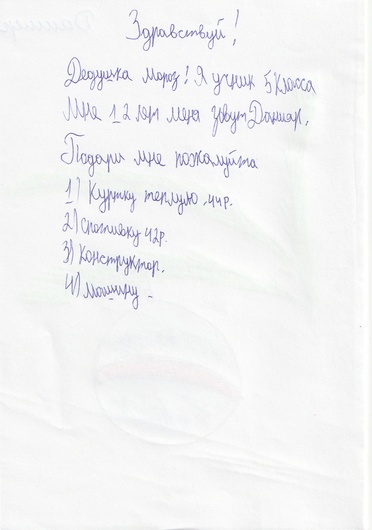 Здравствуй!
Дедушка мороз! Я учник 5 Класса
Мне 12 лет меня зовут Данияр.
Подари мне пожалуйта
1) Куртку теплую .44р.
2) спотивку 42р.
3) Конструктор.
4) машину.